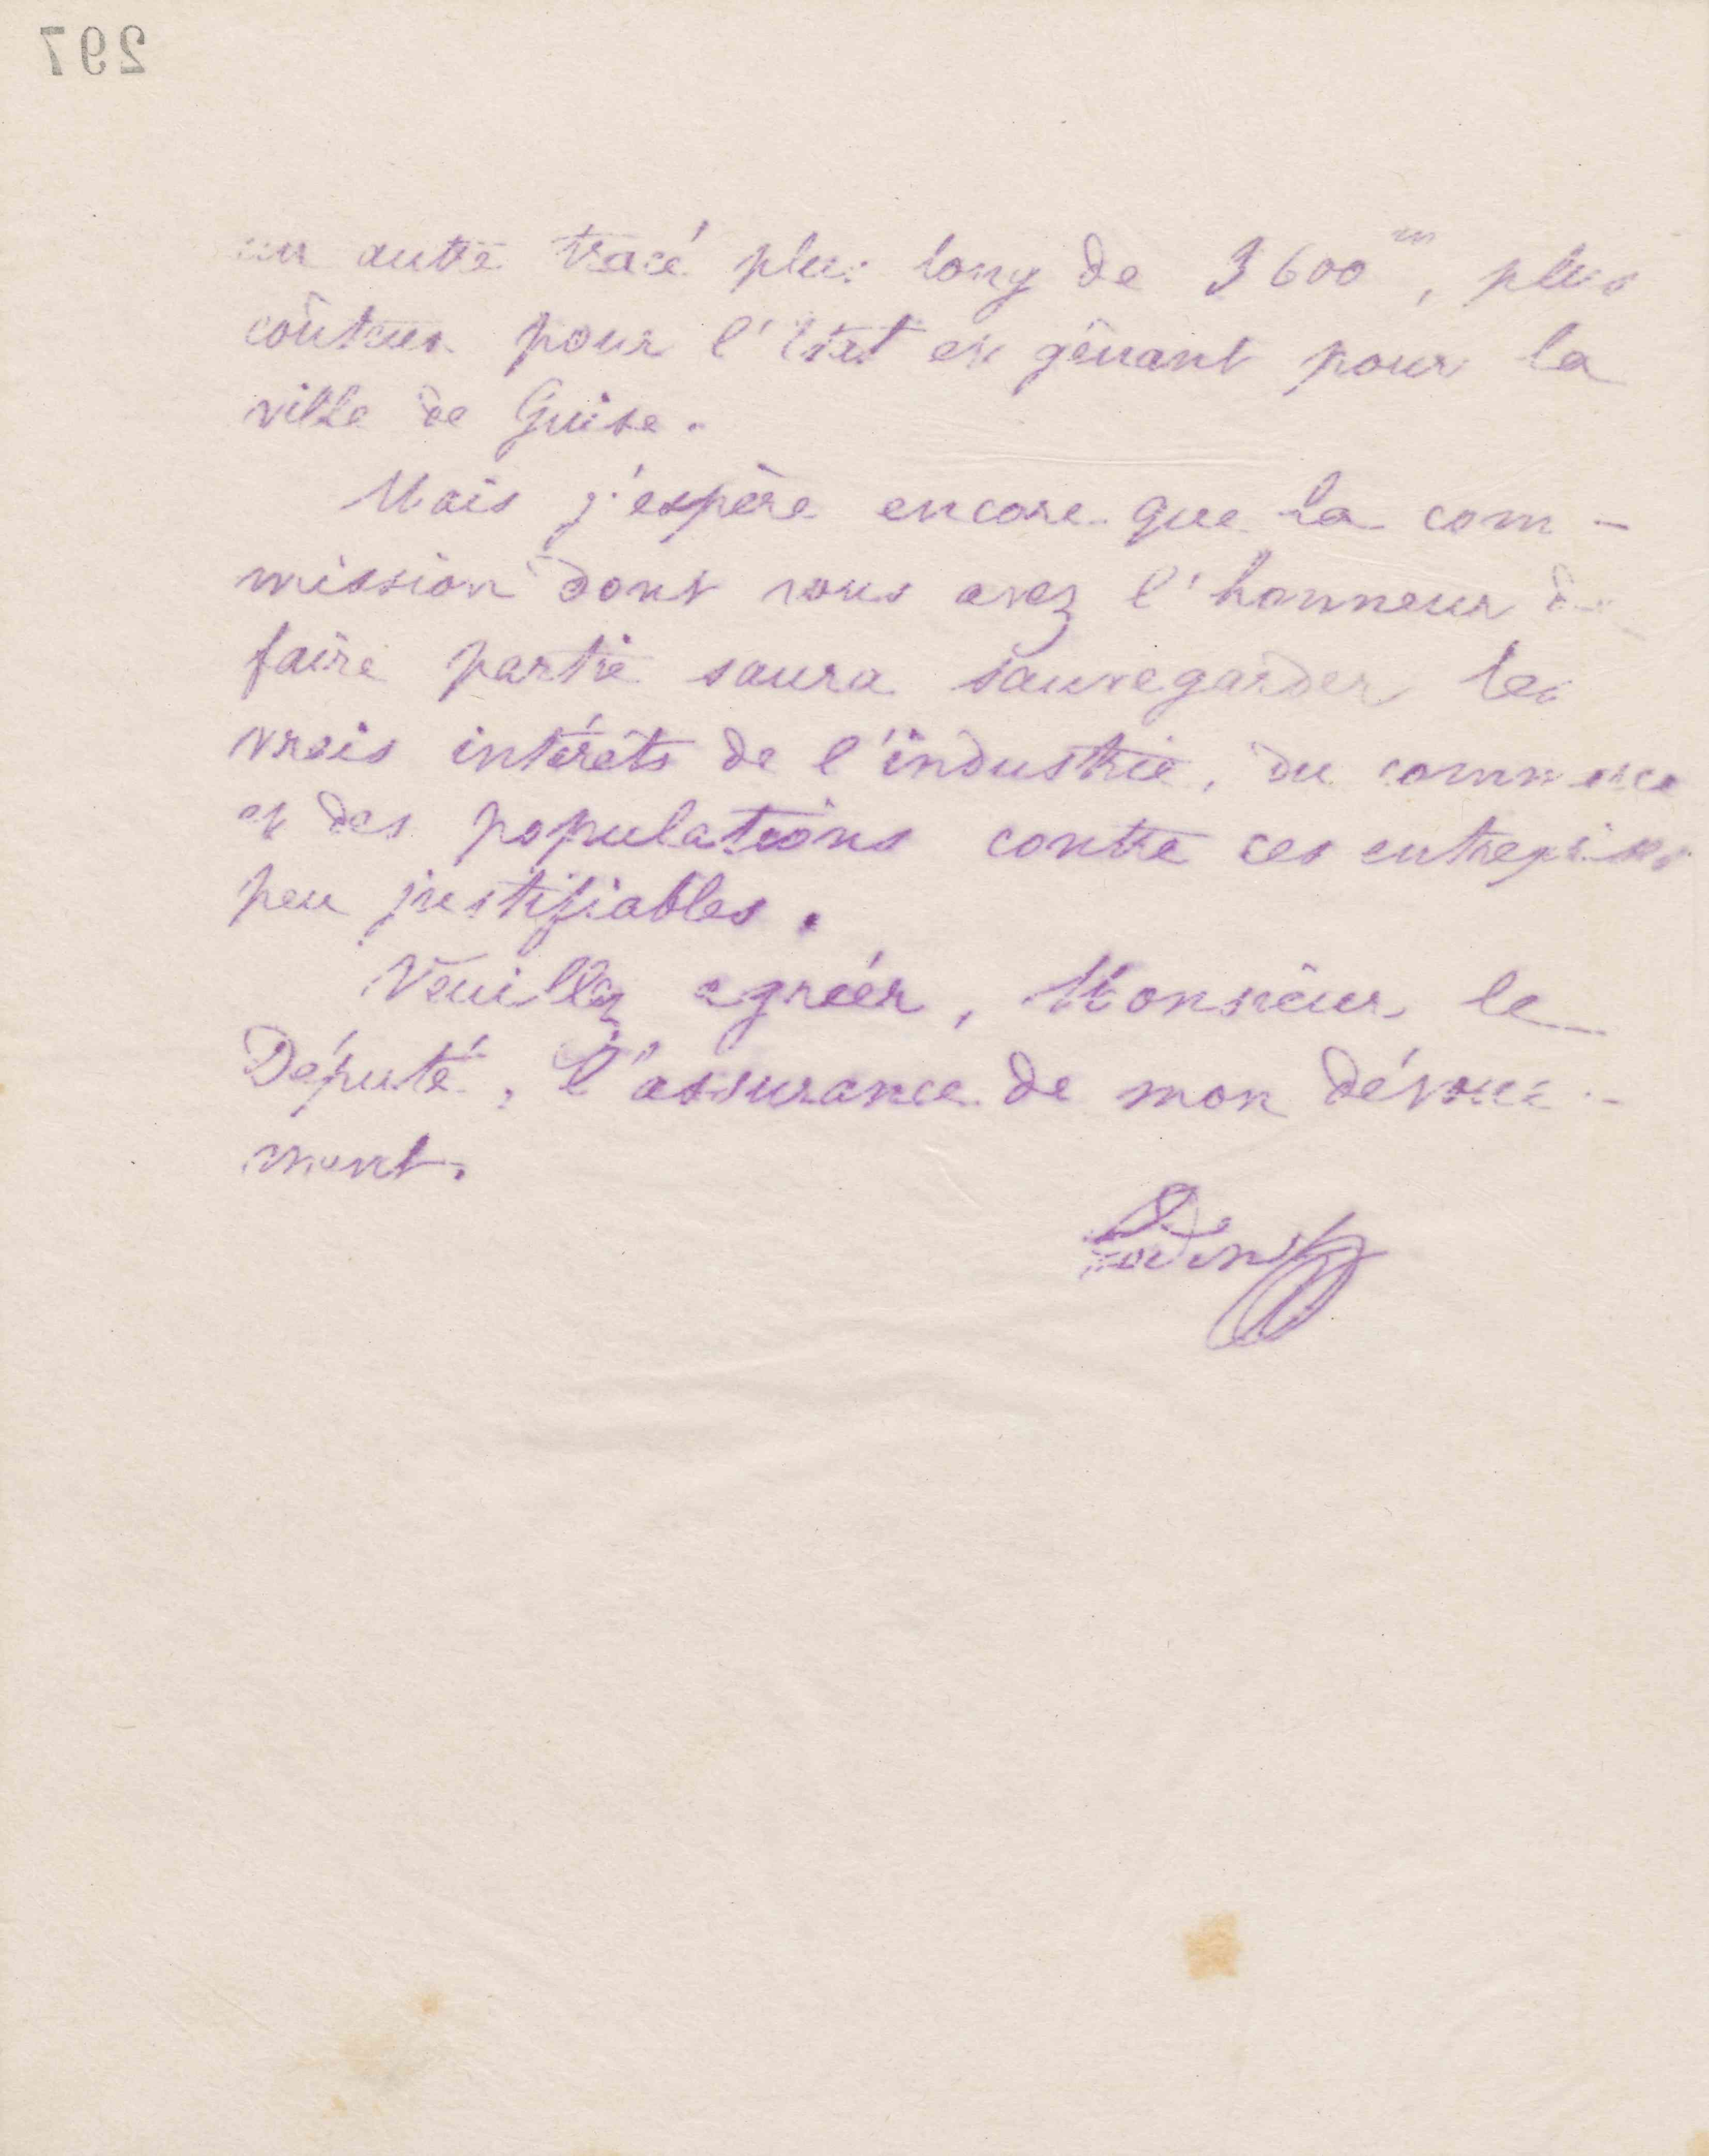 297
un autre tracé plus long de 3600m, plus
coûteux pour l'Etat et gênant pour la
ville de Guise.
Mais j'espère encore que la com-
mission dont vous avez l'honneur de
faire partie saura sauvegarder les
vrais intérêts de l'industrie, du commerce
et des populations contre ces entreprises
peu justifiables.
Veuillez agréer, Monsieur le
Député, l'assurance de mon dévoue-
ment.
Godin